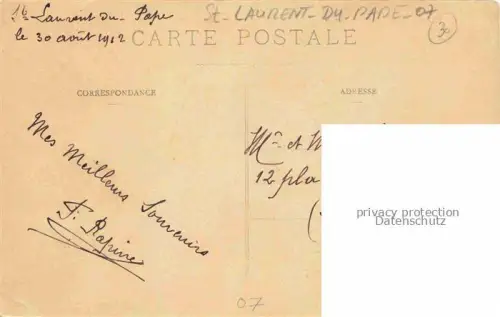 St Laurent du Pape
le 30 août 1912
St. LAURENT-DU-PAPE-07
30
CARTE POSTALE
CORRESPONDANCE
ADRESSE
Mes Meilleurs Souvenirs
Mr et
12 pla
privacy protection
Datenschutz
07